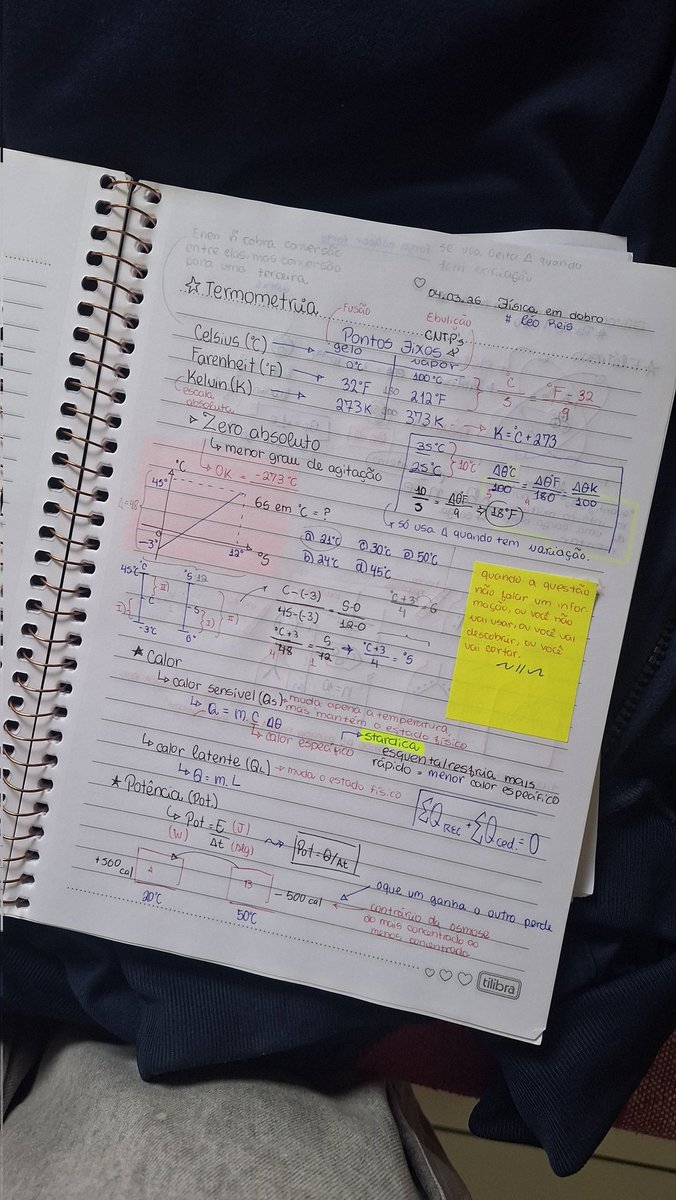 Enem ñ cobra conversão
entre elas, mas conversão
para uma terceira
se usa delta Δ quando
tem variação
♡ 04.03.26 Física em dobro
# Léo Reis
☆ Termometria
Fusão
Ebulição
Pontos Fixos
CNTP's
gelo
vapor
Celsius (°C) → 0°C 100°C
Farenheit (°F) → 32°F 180 212°F
Kelvin (K) → 273K 100 373K → K = °C + 273
escala
absoluta
°C/5 = °F - 32/9
Zero absoluto
↳ menor grau de agitação
↳ 0K = -273°C
35°C
25°C } 10°C
Δθ°C/100 = Δθ°F/180 = ΔθK/100
10/5 = Δθ°F/9 ⇒ 18°F
↳ só usa Δ quando tem variação.
°C
45°
L=48
-3°
0
12° °S
6S em °C = ?
a) 21°C c) 30°C e) 50°C
b) 24°C d) 45°C
45°C °C °S 12
I) II) C S I) II)
-3°C 0°
C-(-3)/45-(-3) = S-0/12-0
°C+3/4 = 6
°C+3/48 = S/12 → °C+3/4 = °S
4 1
quando a questão
não falar um infor
mação, ou você não
vai usar, ou você vai
descobrir, ou você
vai cortar.
★ Calor
↳ calor sensível (Qs) → muda apena a temperatura,
mas mantém o estado físico
↳ Q = m.c.Δθ
↳ calor específico
→ stardica
esquenta/resfria mais
rápido = menor calor específico
↳ calor latente (QL) → muda o estado físico
↳ Q = m.L
ΣQ REC + ΣQ ced. = 0
★ Potência (Pot.)
↳ Pot = E (J)
(W) Δt (seg)
Pot = Q/Δt
+500 cal A B - 500 cal
20°C 50°C
oque um ganha o outro perde
contrário da osmose
do mais concentrado ao
menos concentrado
♡ ♡ ♡ tilibra